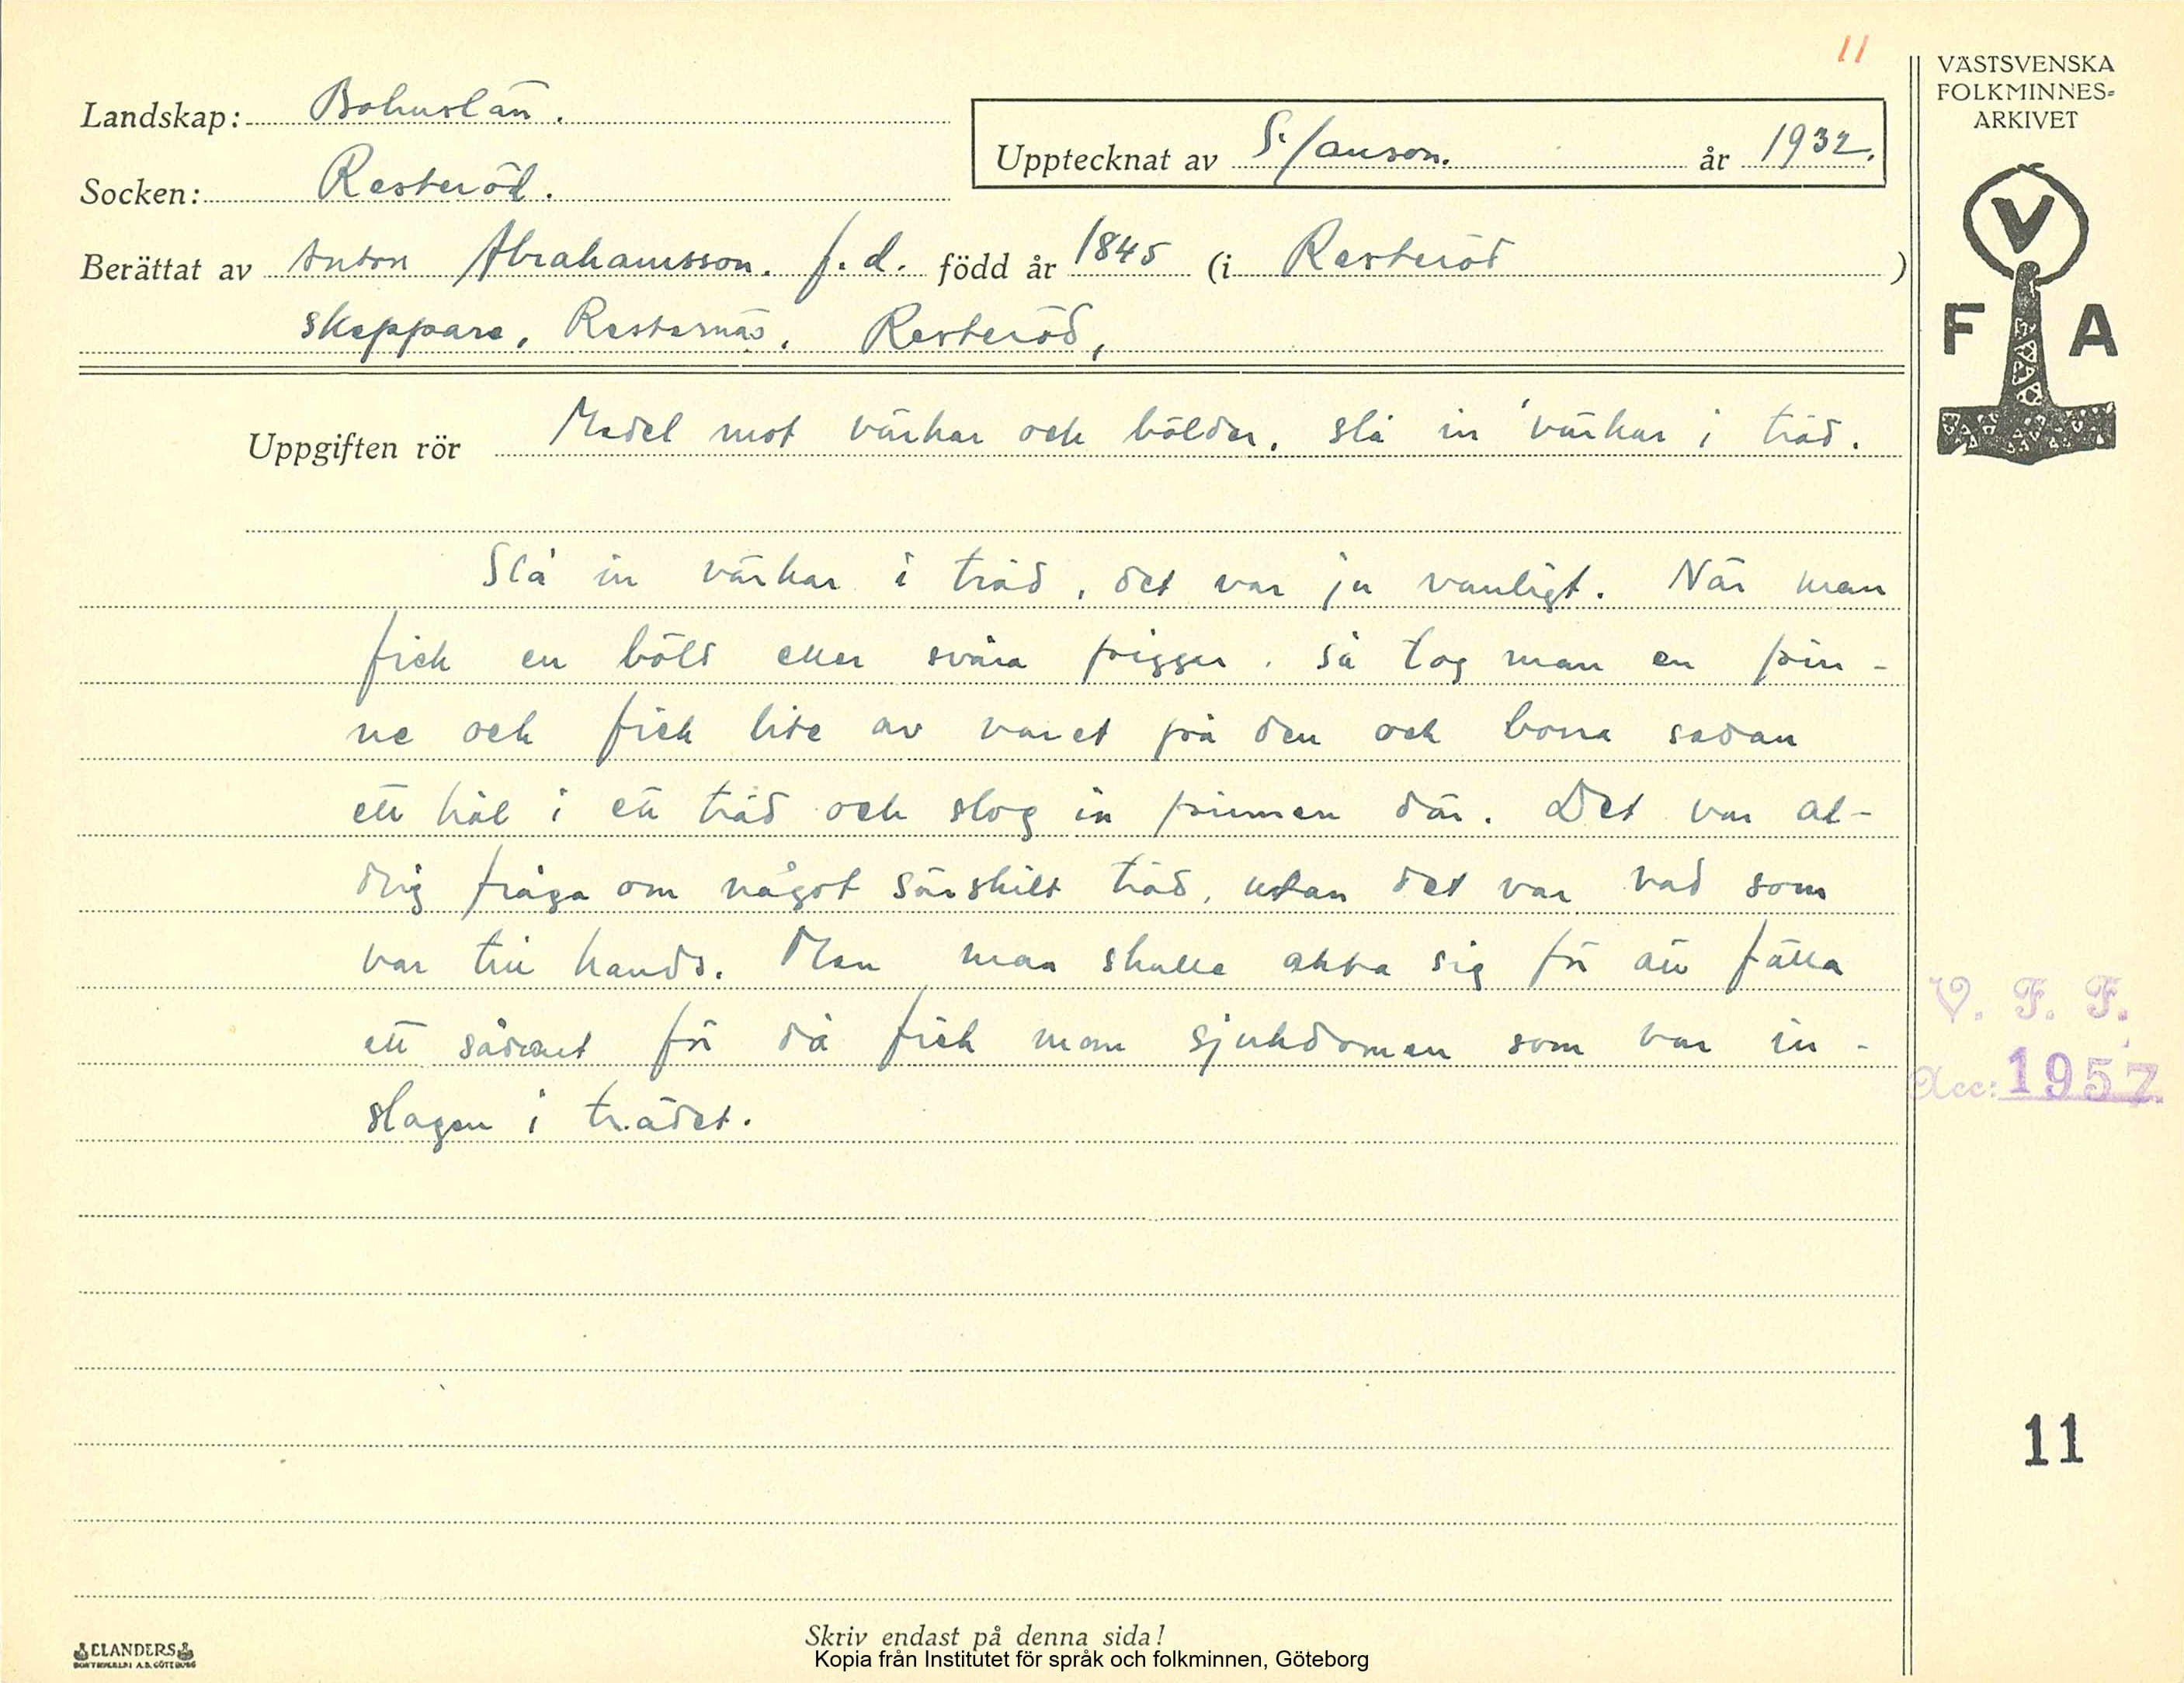 11
VÄSTSVENSKA
FOLKMINNES-
ARKIVET
Landskap: Bohuslän.
Upptecknat av S. Janson. år 1932.
Socken: Resteröd.
Berättat av Anton Abrahamsson. f.d. född år 1845 (i Resteröd)
skeppare, Resternäs, Resteröd,
V
F A
Uppgiften rör Medel mot värkar och bölder, slå in värkar i träd.
Slå in värkar i träd, det var ju vanligt. När man
fick en böld eller svåra piggar, så tog man en pin-
ne och fick lite av varet på den och borra sedan
ett hål i ett träd och slog in pinnen där. Det var al-
drig fråga om något särskilt träd, utan det var vad som
var till hands. Men man skulle akta sig för att fälla
ett sådant för då fick man sjukdomen som var in-
slagen i trädet.
V. F. F.
Acc: 1957
11
Skriv endast på denna sida!
Kopia från Institutet för språk och folkminnen, Göteborg
ELANDERS